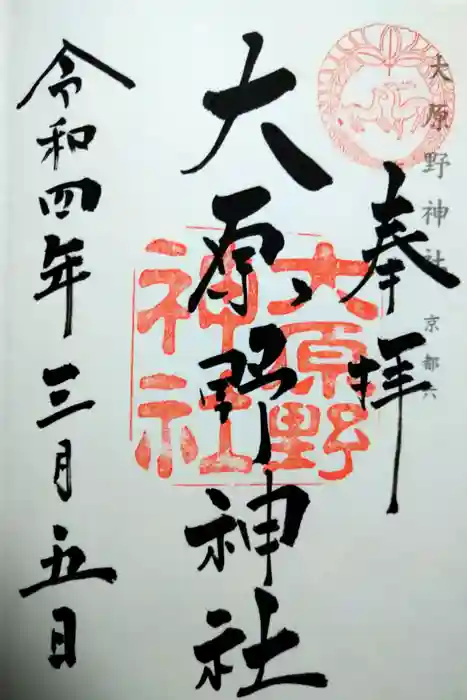 大原野神社
京都六
奉拝
大原野神社
大原野
神社
令和四年三月五日